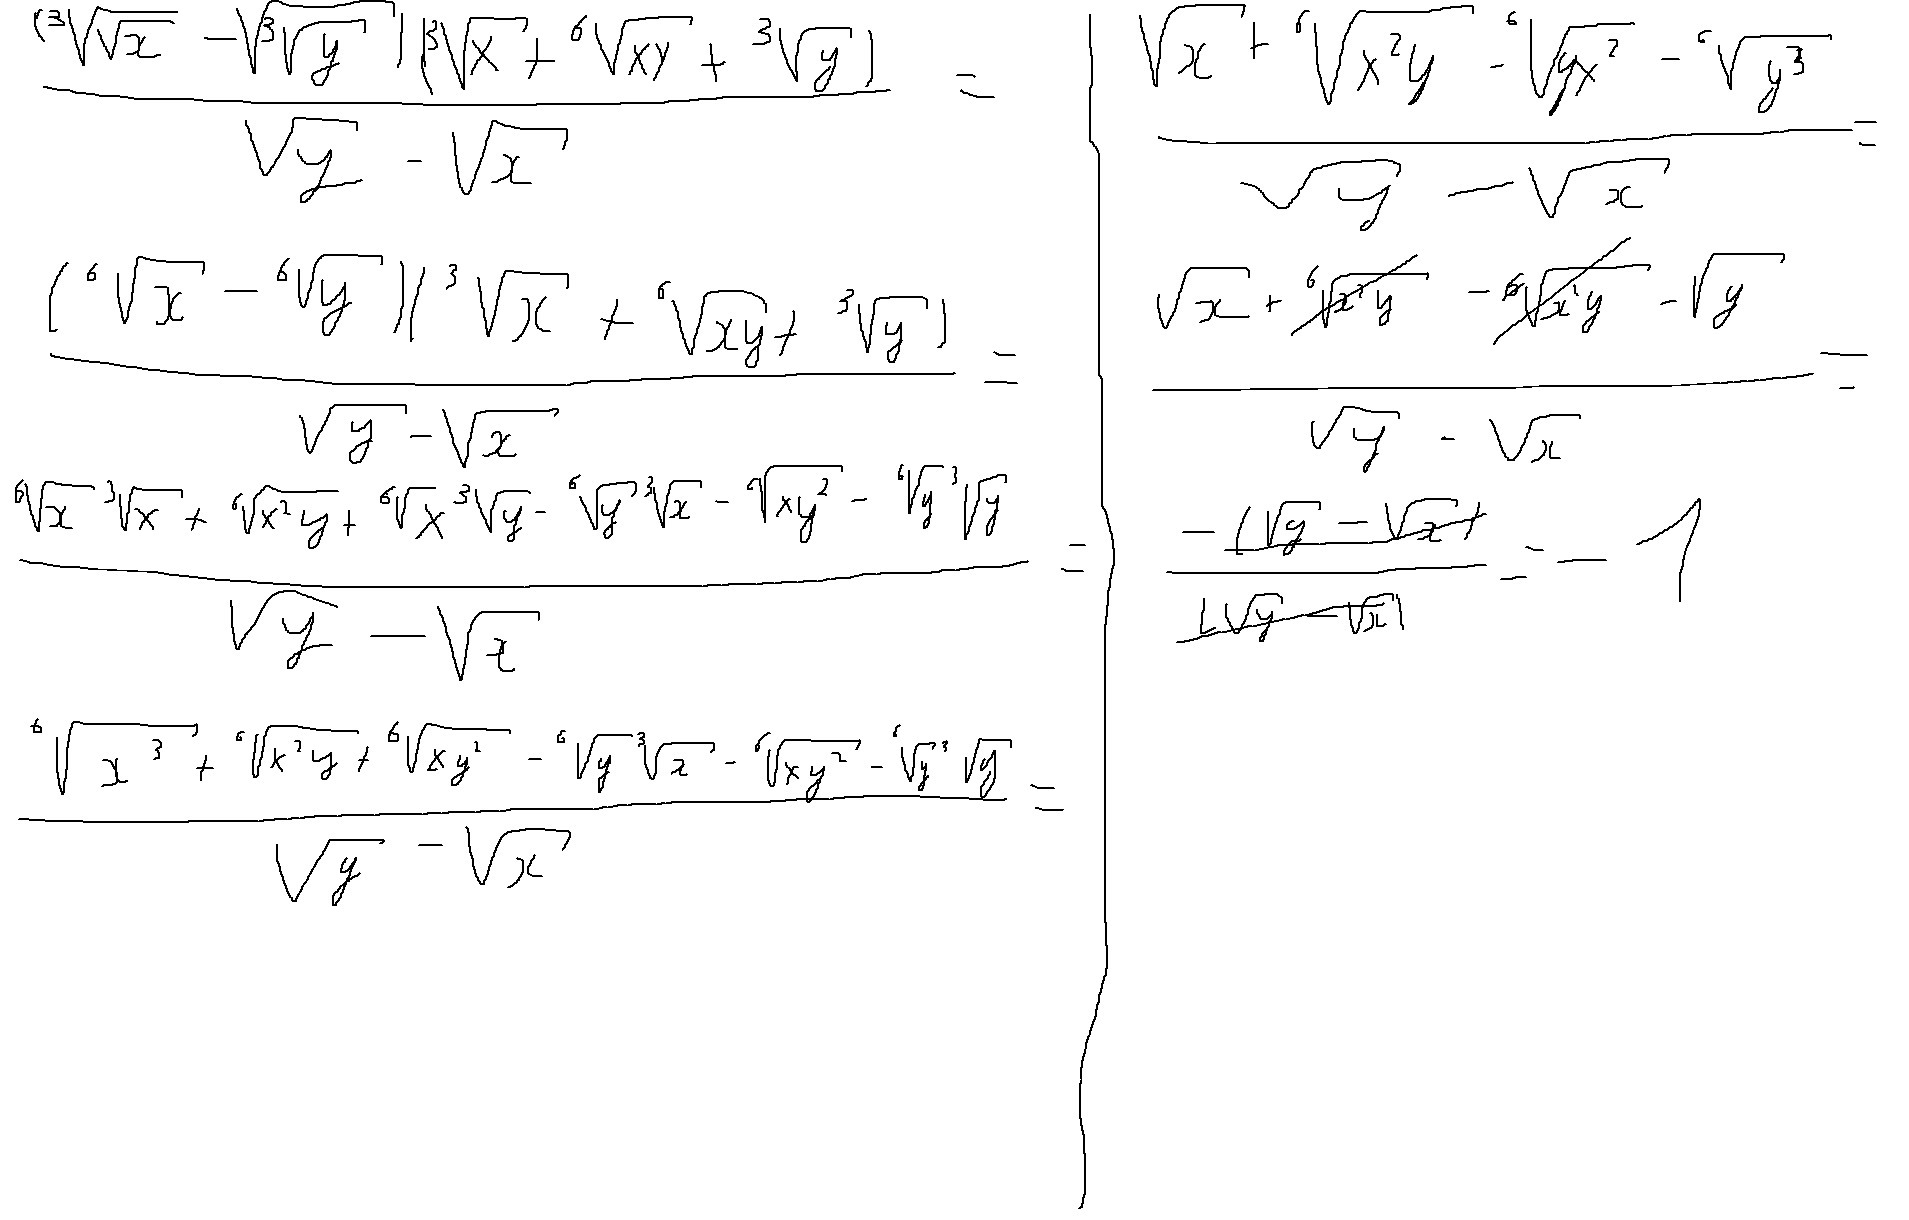 (³√√x − √³√y)(³√x + ⁶√xy + ³√y) =
√y − √x
(⁶√x − ⁶√y)(³√x + ⁶√xy + ³√y) =
√y − √x
⁶√x ³√x + ⁶√x²y + ⁶√x ³√y − ⁶√y ³√x − ⁶√xy² − ⁶√y ³√y =
√y − √x
⁶√x³ + ⁶√x²y + ⁶√xy² − ⁶√y ³√x − ⁶√xy² − ⁶√y ³√y =
√y − √x
√x + ⁶√x²y − ⁶√yx² − ⁶√y³ =
√y − √x
√x + ⁶√x²y − ⁶√x²y − √y =
√y − √x
−(√y − √x) = −1
(√y − √x)